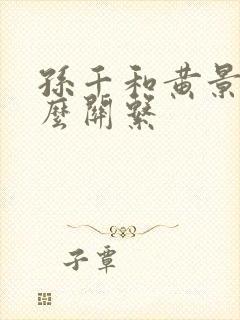 孫千和黃景
麼關繫
子覃